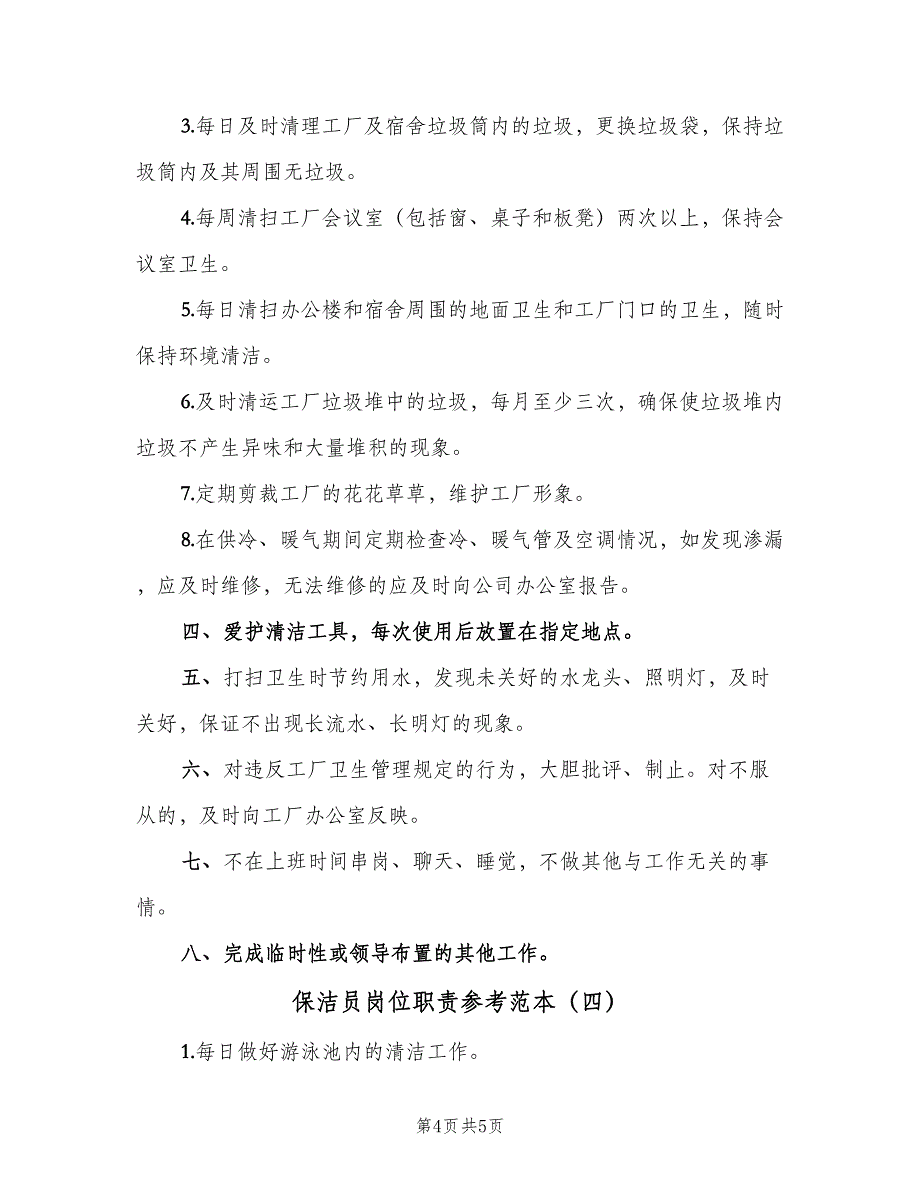 3.每日及时清理工厂及宿舍垃圾筒内的垃圾，更换垃圾袋，保持垃
圾筒内及其周围无垃圾。
4.每周清扫工厂会议室（包括窗、桌子和板凳）两次以上，保持会
议室卫生。
5.每日清扫办公楼和宿舍周围的地面卫生和工厂门口的卫生，随时
保持环境清洁。
6.及时清运工厂垃圾堆中的垃圾，每月至少三次，确保使垃圾堆内
垃圾不产生异味和大量堆积的现象。
7.定期剪裁工厂的花花草草，维护工厂形象。
8.在供冷、暖气期间定期检查冷、暖气管及空调情况，如发现渗漏
，应及时维修，无法维修的应及时向公司办公室报告。
四、爱护清洁工具，每次使用后放置在指定地点。
五、打扫卫生时节约用水，发现未关好的水龙头、照明灯，及时
关好，保证不出现长流水、长明灯的现象。
六、对违反工厂卫生管理规定的行为，大胆批评、制止。对不服
从的，及时向工厂办公室反映。
七、不在上班时间串岗、聊天、睡觉，不做其他与工作无关的事
情。
八、完成临时性或领导布置的其他工作。
保洁员岗位职责参考范本（四）
1.每日做好游泳池内的清洁工作。
第4页共5页